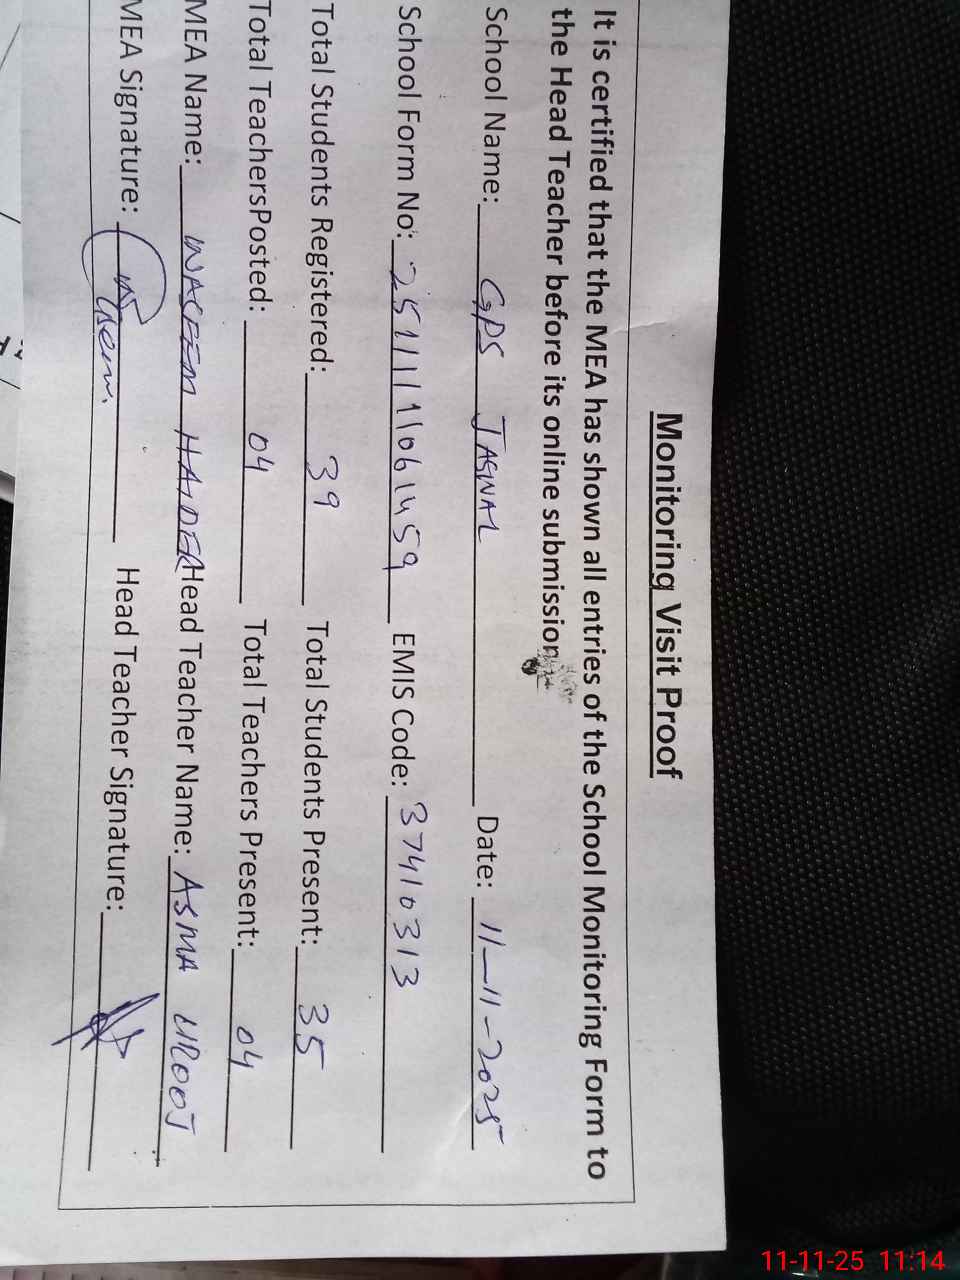 Monitoring Visit Proof
It is certified that the MEA has shown all entries of the School Monitoring Form to
the Head Teacher before its online submission.
School Name: GPS JASWAL Date: 11-11-2025
School Form No: 251111061459 EMIS Code: 37410313
Total Students Registered: 39 Total Students Present: 35
Total TeachersPosted: 04 Total Teachers Present: 04
MEA Name: WASEEM HAIDER Head Teacher Name: ASMA UROOJ
MEA Signature: Waseem Head Teacher Signature:
11-11-25 11:14